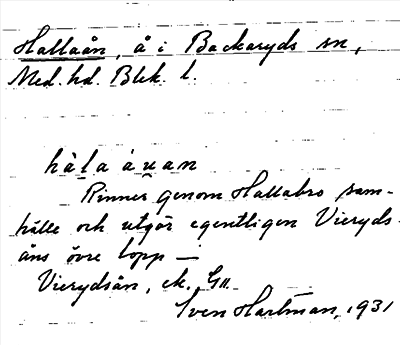 Hallaån, å i Backaryds sn,
Med. hd. Blek. l.
hàla áuan
Rinner genom Hallabro sam-
hälle och utgör egentligen Vieryds-
åns övre lopp —
Vierydsån, ek. G11.
Sven Hartman, 1931